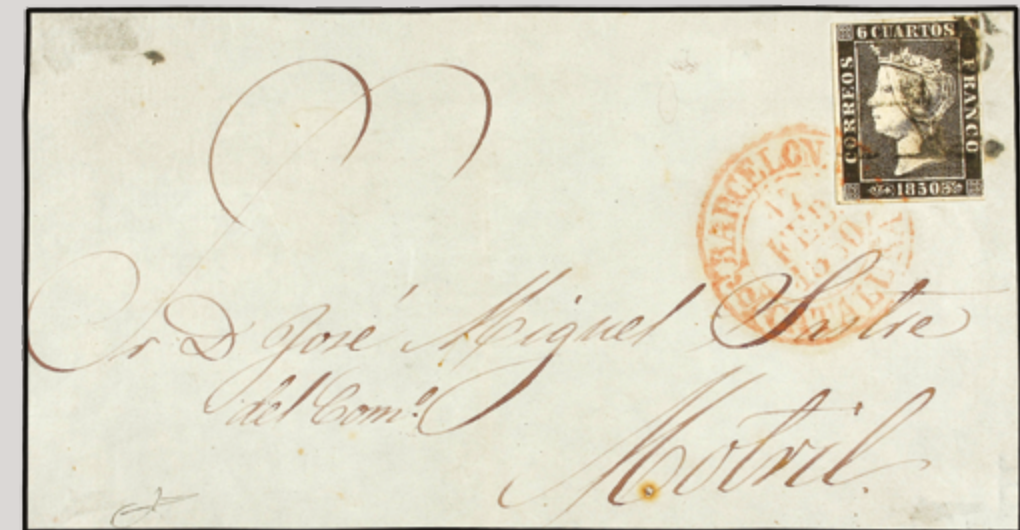 6 CUARTOS
CORREOS
FRANCO
1850
BARCELON
17
FEB
1850
CATALU
Sr D José Miguel Sastre
del Comº
Motril.